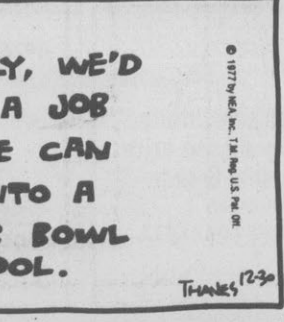 LY, WE'D
A JOB
E CAN
NTO A
BOWL
OOL.
© 1977 by NEA, Inc., T.M. Reg. U.S. Pat. Off.
THAVES 12-30